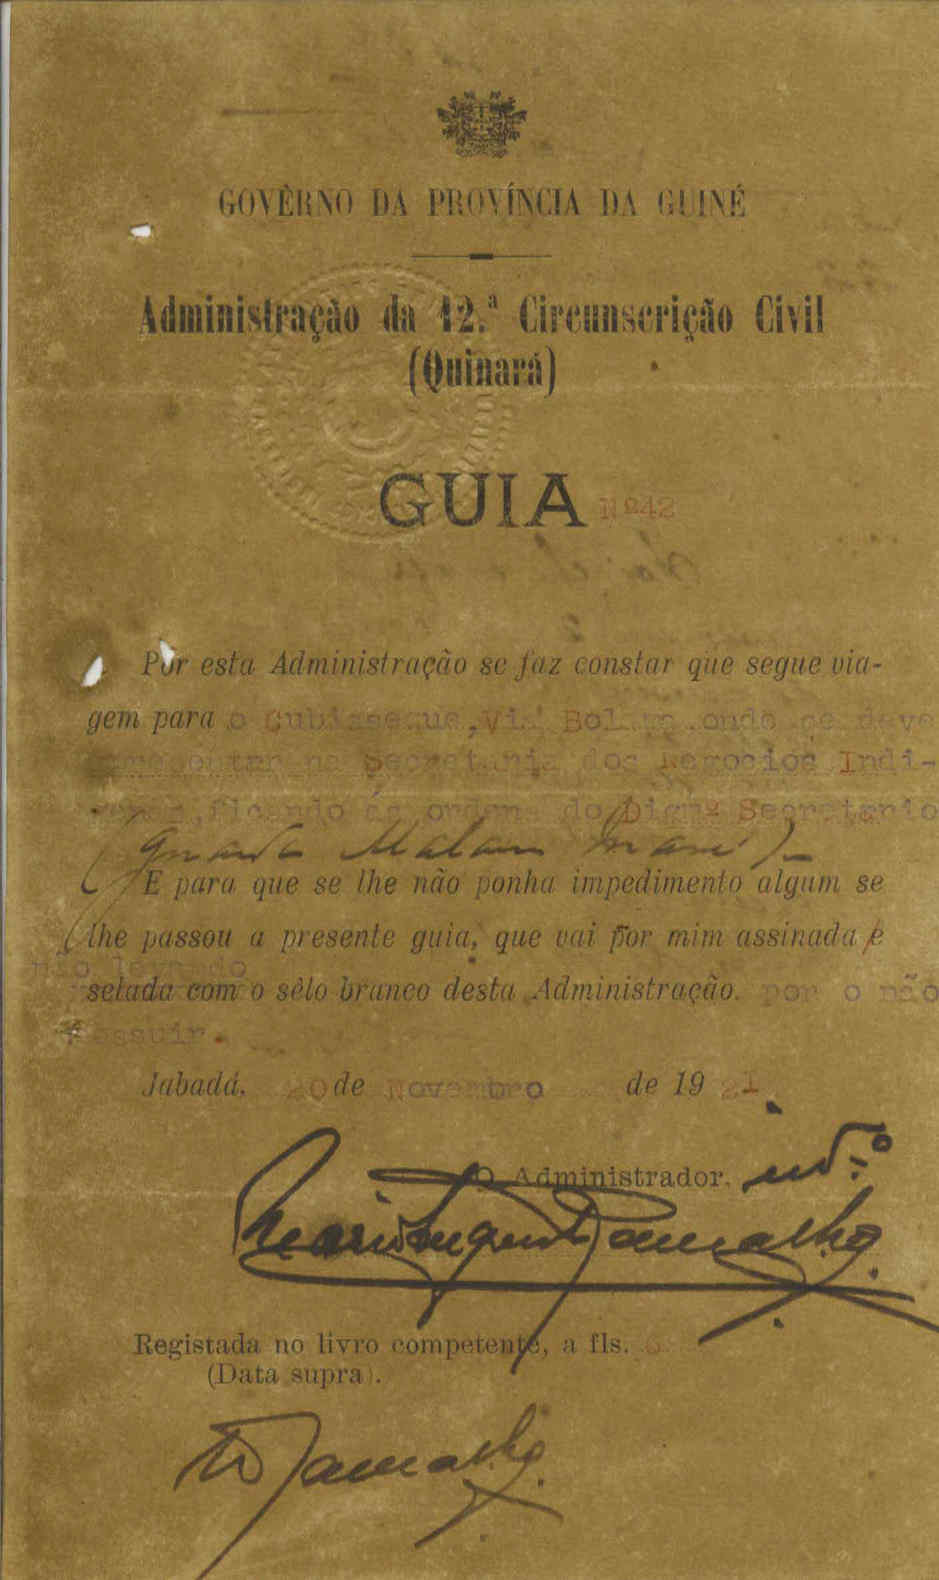 GOVÊRNO DA PROVÍNCIA DA GUINÉ
Administração da 12.ª Circunscrição Civil
(Quinará)
GUIA Nº42
Por esta Administração se faz constar que segue via-
gem para o Gubisseque, Via Bolama onde se deve
apresentar na Secretaria dos Negocios Indi-
genas, ficando ás ordens do Dignº Secretario
(guarda Malam Mané)
E para que se lhe não ponha impedimento algum se
lhe passou a presente guia, que vai por mim assinada e
não levando
selada com o sêlo branco desta Administração. por o não
possuir.
Jabadá, 20 de Novembro de 1921
O Administrador, intº
Mario Ramalho
Registada no livro competente, a fls. 6
(Data supra).
Ramalho